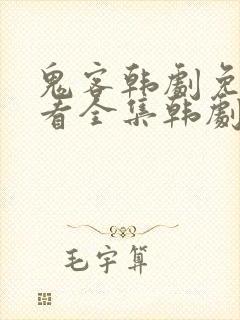 鬼客韩劇免
看全集韩劇
毛宇算